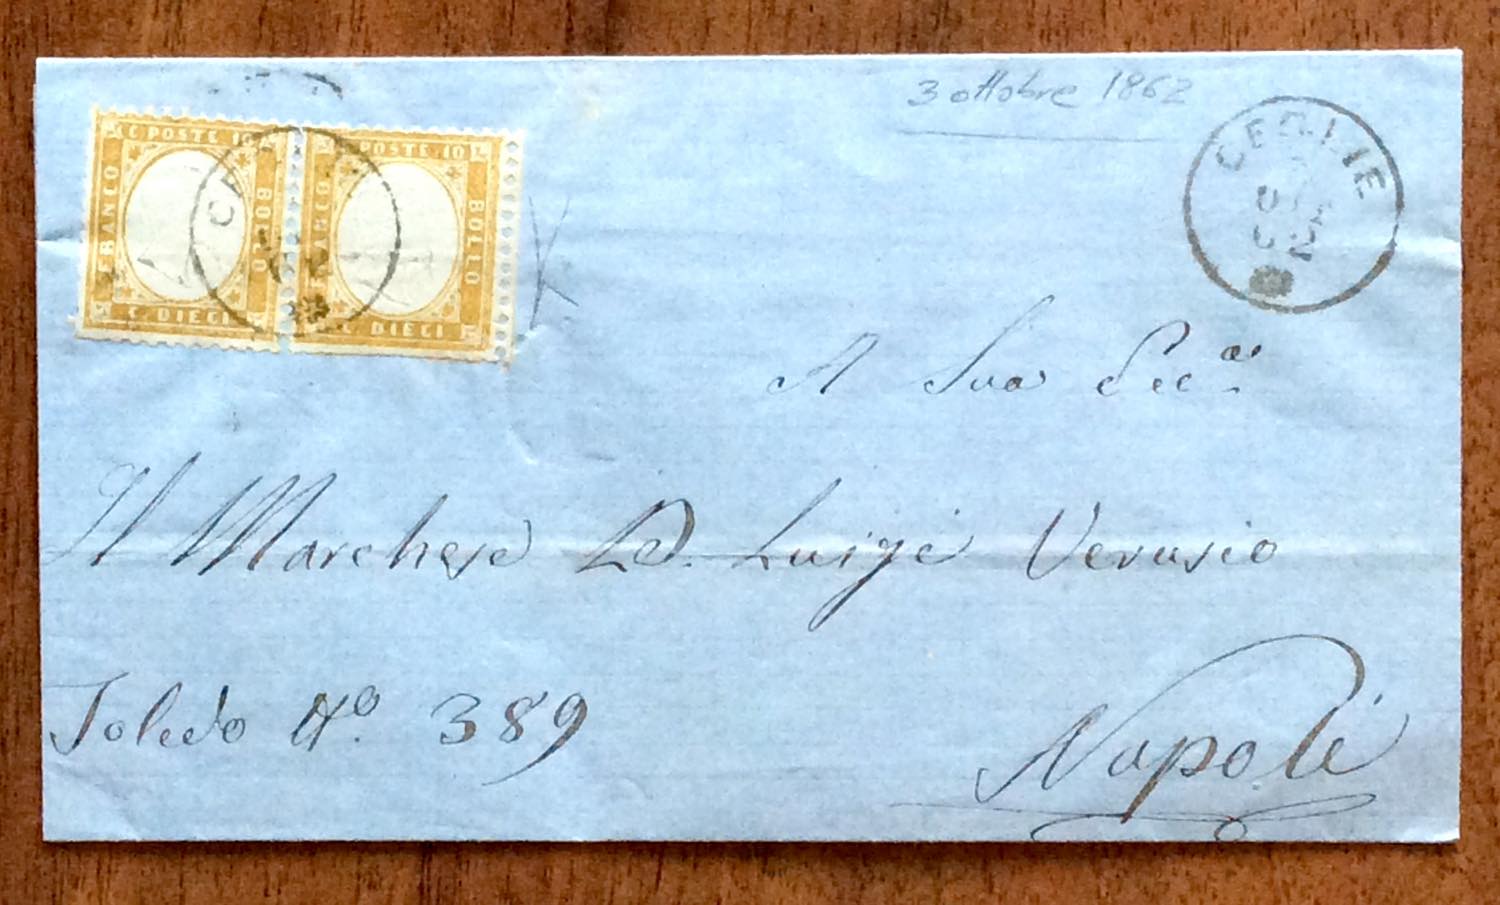 3 ottobre 1862
CEGLIE
C. POSTE 10
FRANCO
BOLLO
C. DIECI
POSTE 10
FRANCO
BOLLO
C. DIECI
A Sua Ecc.a
Il Marchese D. Luigi Verusio
Toledo No. 389
Napoli